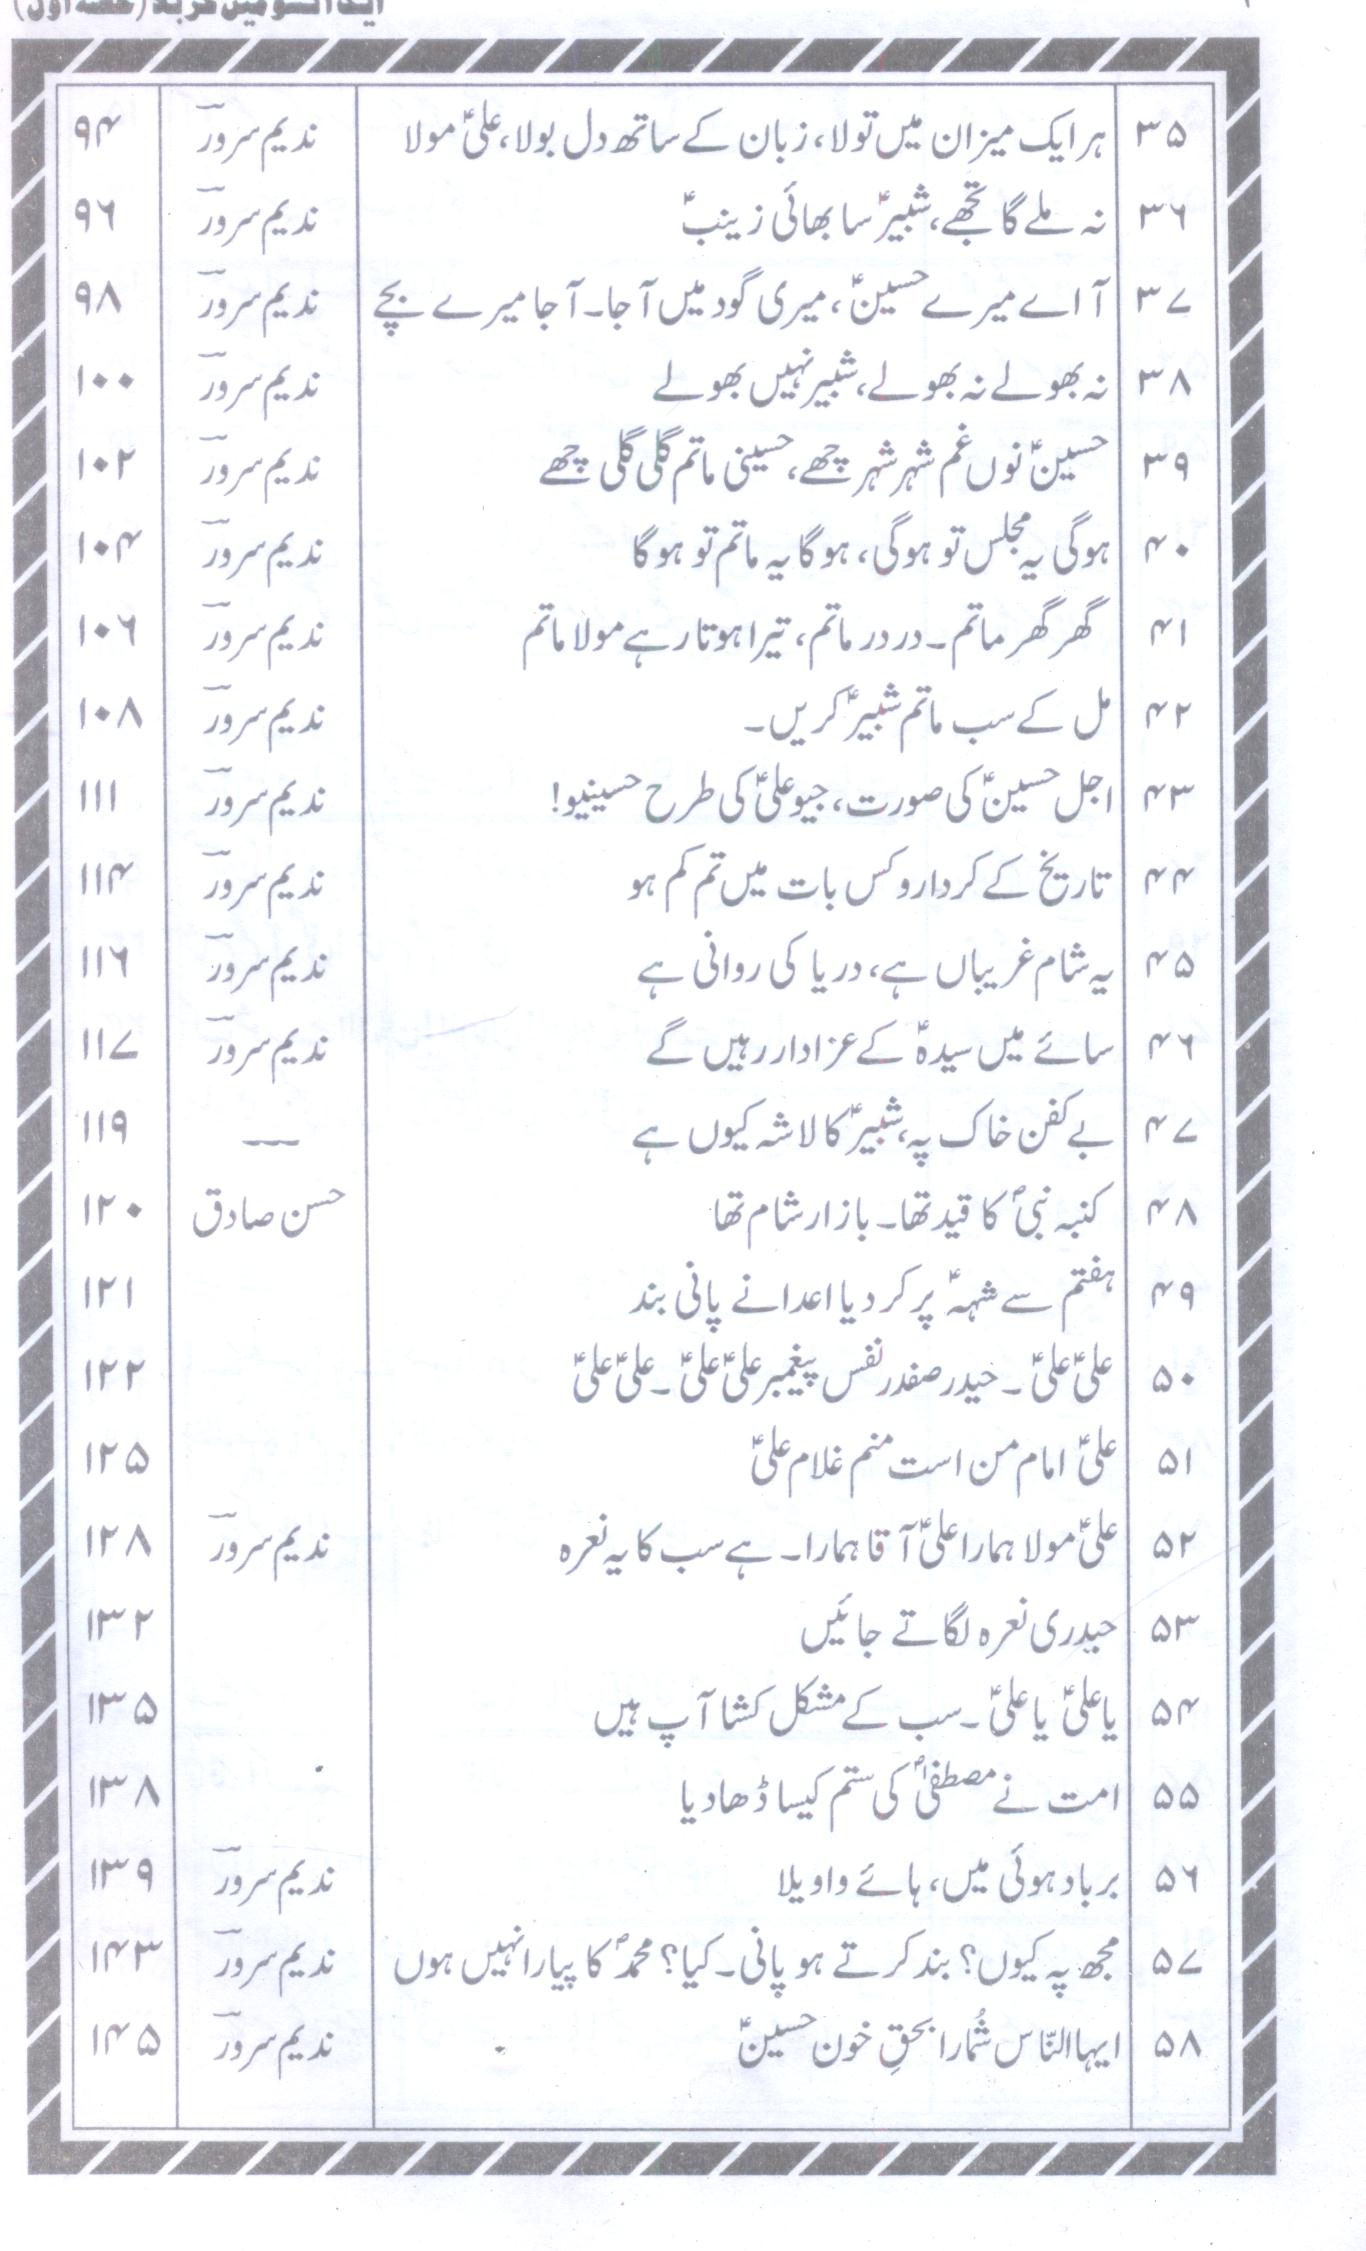 ایک آنسو میں کربلا (حصہ اول)
۳۵ ہر ایک میزان میں تولا، زبان کے ساتھ دل بولا، علیؑ مولا ندیم سرورؔ ۹۴
۳۶ نہ ملے گا تجھے، شبیرؑ سا بھائی زینبؑ ندیم سرورؔ ۹۶
۳۷ آ اے میرے حسینؑ، میری گود میں آ جا۔ آ جا میرے بچے ندیم سرورؔ ۹۸
۳۸ نہ بھولے نہ بھولے، شبیر نہیں بھولے ندیم سرورؔ ۱۰۰
۳۹ حسینؑ نوں غم شہر شہر چھے، حسینی ماتم گلی گلی چھے ندیم سرورؔ ۱۰۲
۴۰ ہوگی یہ مجلس تو ہوگی، ہوگا یہ ماتم تو ہوگا ندیم سرورؔ ۱۰۴
۴۱ گھر گھر ماتم۔ در در ماتم، تیرا ہوتا رہے مولا ماتم ندیم سرورؔ ۱۰۶
۴۲ مل کے سب ماتم شبیرؑ کریں۔ ندیم سرورؔ ۱۰۸
۴۳ اجل حسینؑ کی صورت، جیو علیؑ کی طرح حسینیو! ندیم سرورؔ ۱۱۱
۴۴ تاریخ کے کردارو کس بات میں تم کم ہو ندیم سرورؔ ۱۱۴
۴۵ یہ شام غریباں ہے، دریا کی روانی ہے ندیم سرورؔ ۱۱۶
۴۶ سائے میں سیدہؑ کے عزادار رہیں گے ندیم سرورؔ ۱۱۷
۴۷ بے کفن خاک پہ، شبیرؑ کا لاشہ کیوں ہے — ۱۱۹
۴۸ کنبہ نبیؐ کا قید تھا۔ بازار شام تھا حسن صادق ۱۲۰
۴۹ ہفتم سے شہہؑ پر کر دیا اعدا نے پانی بند ۱۲۱
۵۰ علیؑ علیؑ ۔ حیدر صفدر نفس پیغمبر علیؑ علیؑ ۔ علیؑ علیؑ ۱۲۲
۵۱ علیؑ امام من است منم غلام علیؑ ۱۲۵
۵۲ علیؑ مولا ہمارا علیؑ آقا ہمارا۔ ہے سب کا یہ نعرہ ندیم سرورؔ ۱۲۸
۵۳ حیدری نعرہ لگاتے جائیں ۱۳۲
۵۴ یا علیؑ یا علیؑ ۔ سب کے مشکل کشا آپ ہیں ۱۳۵
۵۵ امت نے مصطفیٰؐ کی ستم کیسا ڈھا دیا ۱۳۸
۵۶ برباد ہوئی میں، ہائے واویلا ندیم سرورؔ ۱۳۹
۵۷ مجھ پہ کیوں؟ بند کرتے ہو پانی۔ کیا؟ محمدؐ کا پیارا نہیں ہوں ندیم سرورؔ ۱۴۳
۵۸ ایہا النّاس شُمارا بحقِ خون حسینؑ ندیم سرورؔ ۱۴۵